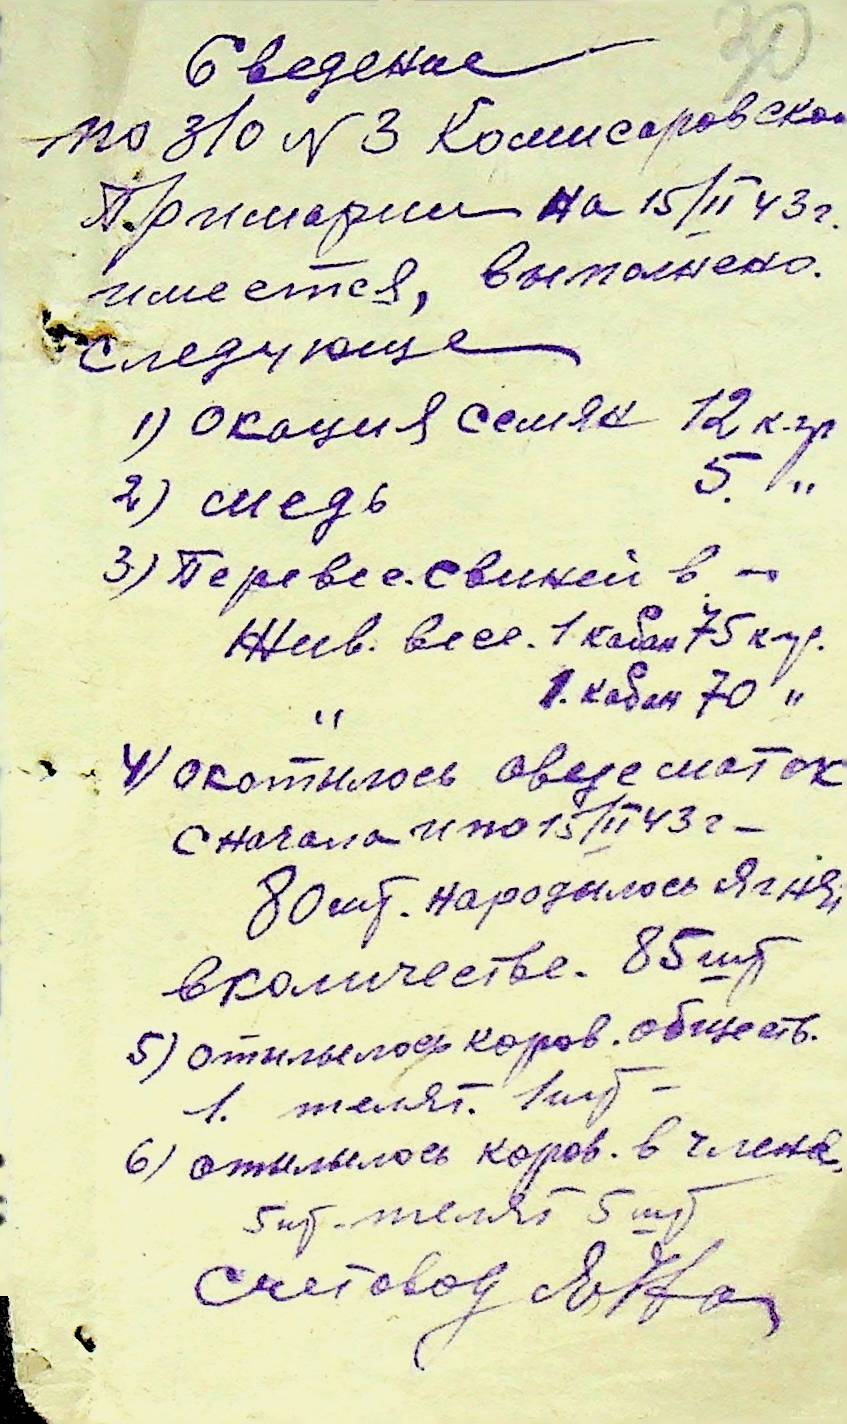 30
Сведение
по з/о N 3 Комисаровской
Примарии на 15/II 43 г.
имеется, выполнено.
следующе
1) окация семян 12 к.гр
2) медь 5. "
3) Перевес. свиней в. -
Жив. весе. 1 кабан 75 к-гр.
" 1. кабан 70 "
4) окотилось овцематок
с начала и по 15/II 43 г -
80 шт. народилось ягня,
в количестве. 85 шт
5) отилылось коров. обществ.
1. телят. 1 шт -
6) отилылось коров. в члена.
5 шт. телят 5 шт
Счетовод